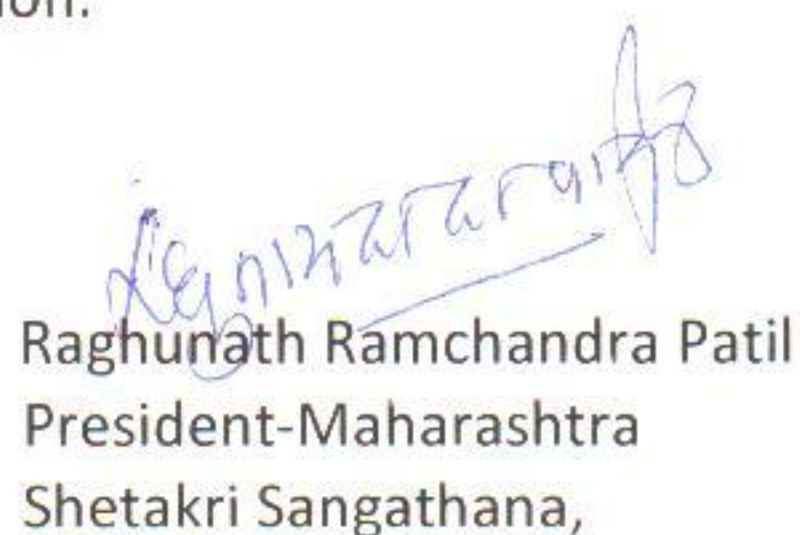 Raghunath Ramchandra Patil
President-Maharashtra
Shetakri Sangathana,